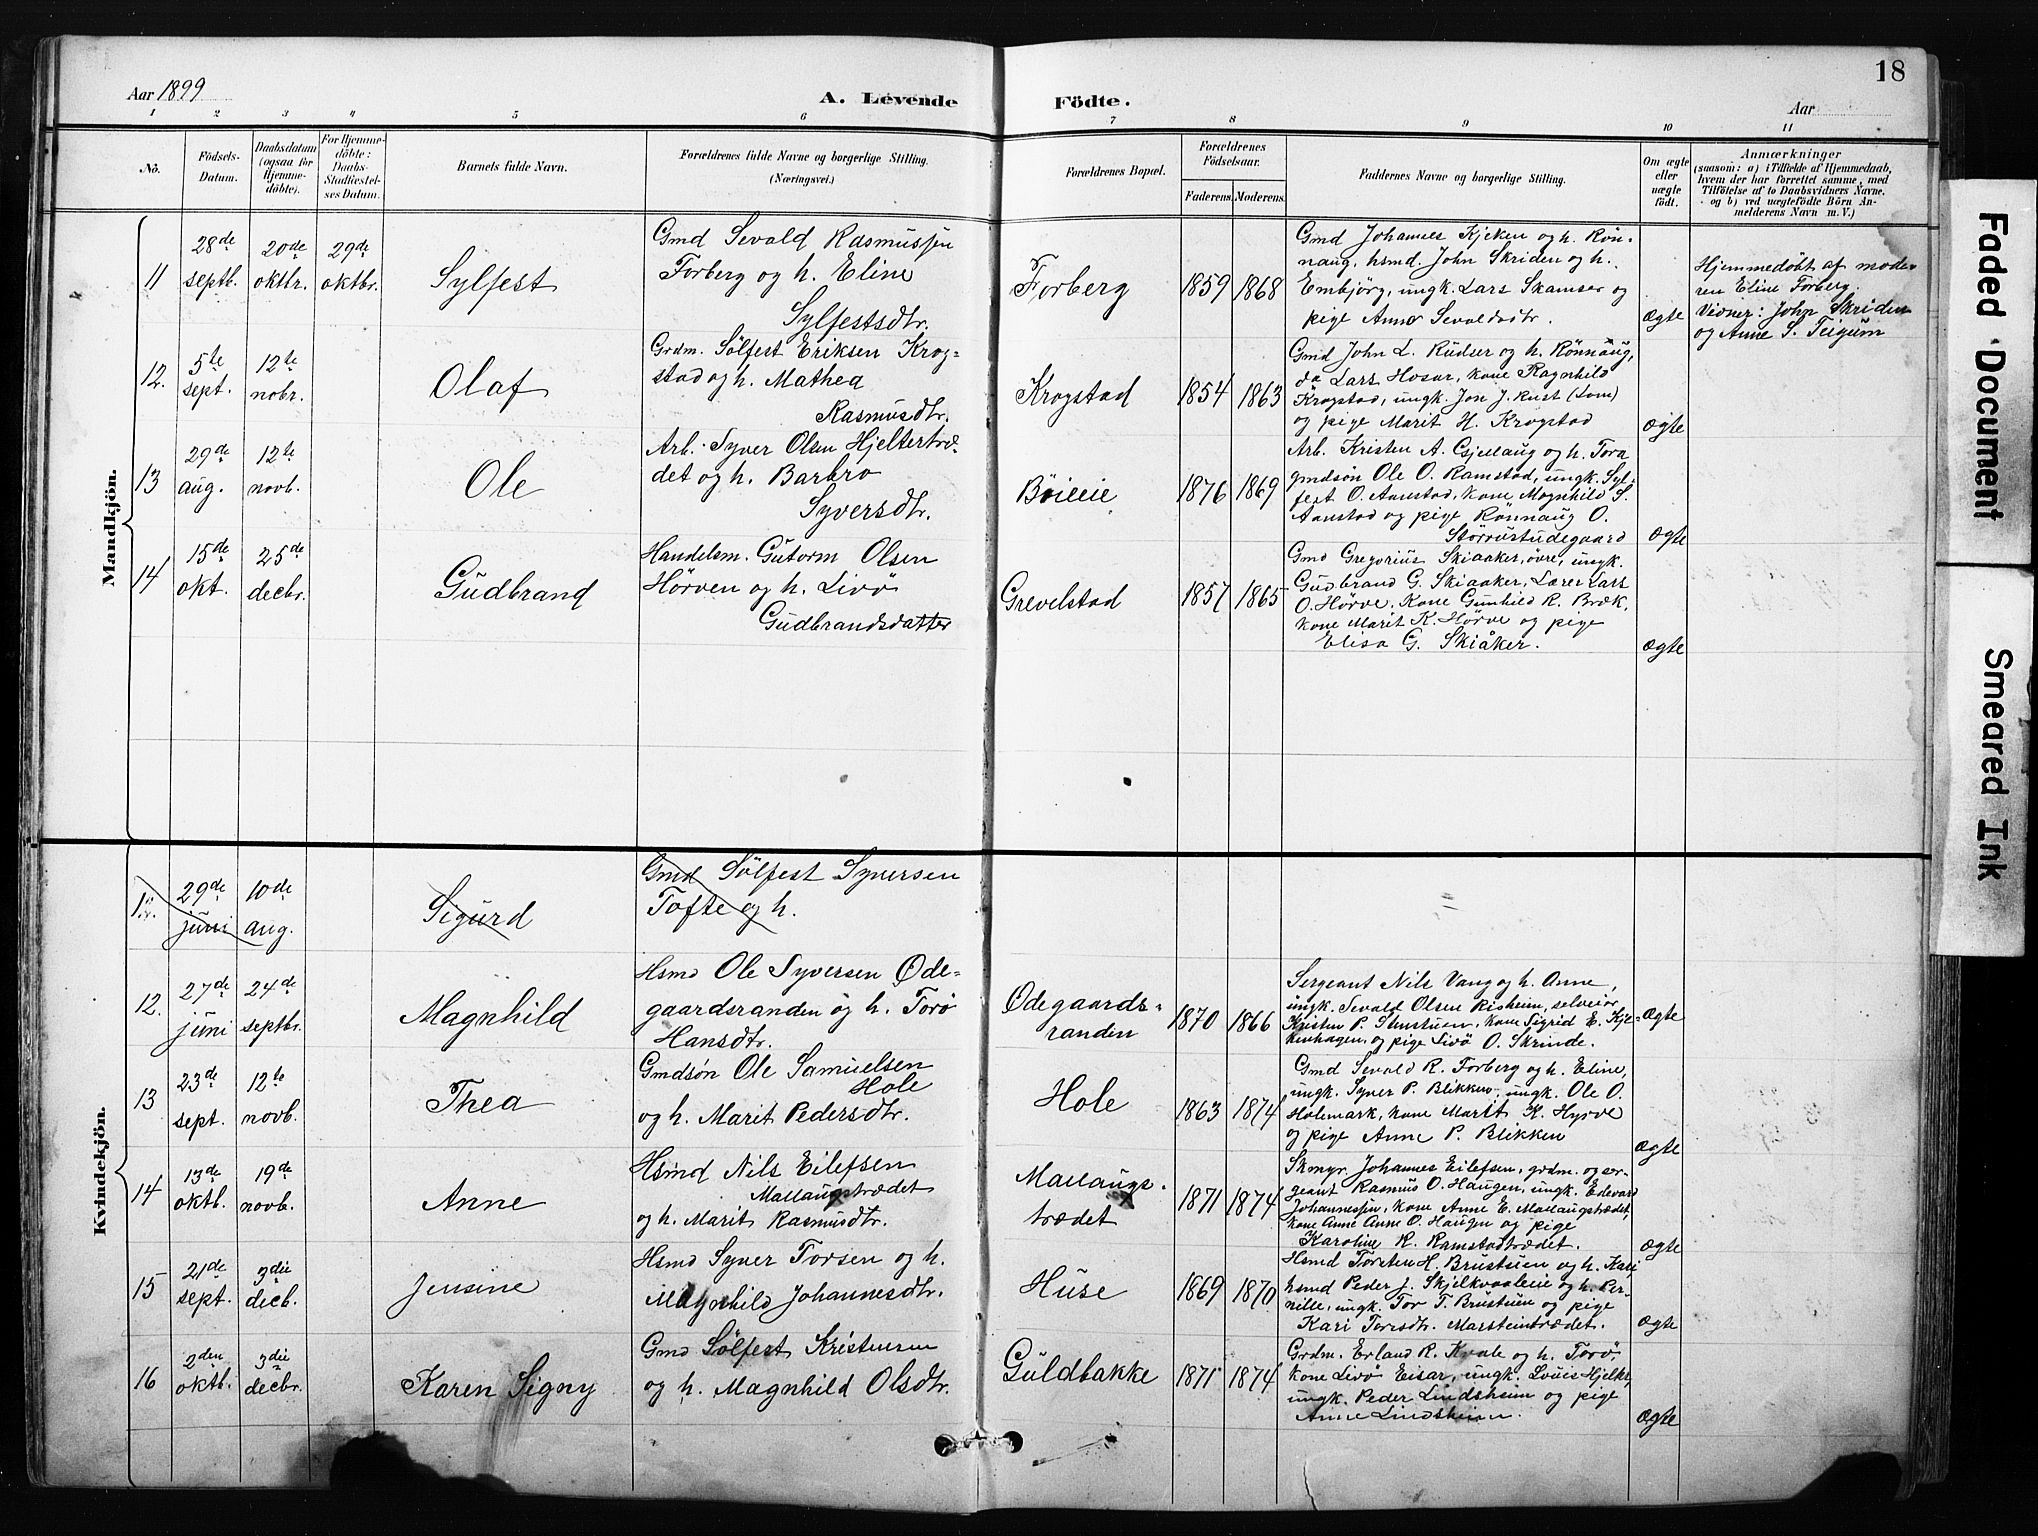 18
Aar 1899
A. Levende Födte.
Aar
1 2 3 4 5 6 7 8 9 10 11
No.
Födsels-
Datum.
Daabsdatum
(ogsaa for
Hjemme-
döbte).
For Hjemme-
döbte:
Daabs-
Stadfæstel-
ses Datum.
Barnets fulde Navn.
Forældrenes fulde Navne og borgerlige Stilling.
(Næringsvei.)
Forældrenes Bopæl.
Forældrenes
Födselsaar.
Faderens Moderens
Faddernes Navne og borgerlige Stilling.
Om ægte
eller
uægte
födt.
Anmærkninger
(saasom: a) i Tilfælde af Hjemmedaab,
hvem der har forrettet samme, med
Tilföielse af to Daabsvidners Navne,
og b) ved uægtefödte Börn An-
melderens Navn m.V.)
Mandkjön.
11
28de
septb.
20de
oktbr.
29de
oktbr.
Sylfest
Gmd Sevald Rasmussen
Forberg og h. Eline
Sylfestsdtr.
Forberg
1859 1868
Gmd Johannes Kjeken og h. Rön-
naug, hsmd. John Skriden og h.
Embjörg, ungk. Lars Skamser og
pige Anne Sevaldsdtr.
ægte
Hjemmedöbt af mode-
ren Eline Forberg.
Vidner: John Skriden
og Anne S. Teigum
12.
5te
sept.
12te
nobr.
Olaf
Grdm. Sölfest Eriksen Krog-
stad og h. Mathea
Rasmusdtr.
Krogstad
1854 1863
Gmd John L. Rudser og h. Rönnaug,
do Lars Hosar, kone Ragnhild
Krogstad, ungk. Jon J. Rust (Lom)
og pige Marit H. Krogstad
ægte
13
29de
aug.
12te
novb.
Ole
Arb. Syver Olsen Hjeltertræ-
det og h. Barbro
Syversdtr.
Böieie
1876 1869
Arb. Kristen A. Gjellaug og h. Tora
gmdsön Ole O. Ramstad, ungk. Syl-
fest O. Aanstad, kone Magnhild S.
Aanstad og pige Rönnaug O.
Störrustudegaard
ægte
14
15de
okt.
25de
decbr.
Gudbrand
Handelsm. Gutorm Olsen
Hörven og h. Livö
Gudbrandsdatter
Grevelstad
1857 1865
Gmd Gregorius Skiaaker, övre, ungk.
Gudbrand G. Skiaaker, Lærer Lars
O. Hörve, Kone Gunhild R. Bræk,
kone Marit K. Hörve og pige
Elisa G. Skiåker.
ægte
Kvindekjön.
29de
juni
10de
aug.
Sigurd
Gmd Sölfest Syversen
Tofte og h.
12.
27de
juni
24de
septbr.
Magnhild
Hsmd Ole Syversen Öde-
gaardsranden og h. Torö
Hansdtr.
Ödegaards-
randen
1870 1866
Sergeant Nils Vang og h. Anne,
ungk. Sevald Olsen Risheim, selveier
Kristen P. Stustuen, kone Sigrid E. Kjö-
kenhagen, og pige Livö O. Skrinde.
ægte
13
23de
sept.
12te
novb.
Thea
Gmdsön Ole Samuelsen
Hole
og h. Marit Pedersdtr.
Hole
1863 1874
Gmd Sevald R. Forberg og h. Eline,
ungk. Syver P. Blikken, ungk. Ole O.
Holemark, kone Marit K. Hyrve
og pige Anne P. Blikken
ægte
14
13de
oktb.
19de
novb.
Anne
Hsmd Nils Eilefsen
Maelaugstrædet
og h. Marit Rasmusdtr.
Maelaugs-
trædet
1871 1874
Skmgr. Johannes Eilefsen, grdm. og ser-
geant Rasmus O. Haugen, ungk. Edevard
Johannessen, kone Anne E. Maelaugstrædet,
kone Anne Anne O. Haugen og pige
Karoline R. Ramstadtrædet.
ægte
15
21de
sept.
3die
decb.
Jensine
Hsmd Syver Torsen og h.
Magnhild Johannesdtr.
Huse
1869 1870
Hsmd Torsten H. Brustuen og h. Kari,
hsmd Peder J. Skjelkvaaleie og h. Per-
nille, ungk. Tor T. Brustuen og pige
Kari Torsdtr. Marsteintrædet.
ægte
16
2den
oktb.
3die
decbr.
Karen Signy
Gmd Sölfest Kristensen
og h. Magnhild Olsdtr.
Guldbakke
1871 1874
Grdm. Erland R. Kvale og h. Torö,
kone Livö Eisar, ungk. Louis Hjelkr,
ungk. Peder Lindsheim og pige
Anne Lindsheim.
ægte
Faded Document
Smeared Ink